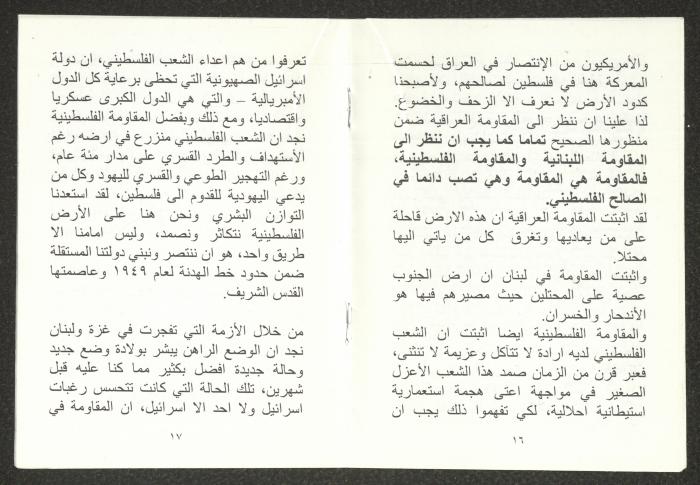 والأمريكيون من الإنتصار في العراق لحسمت
المعركة هنا في فلسطين لصالحهم، ولأصبحنا
كدود الأرض لا نعرف الا الزحف والخضوع.
لذا علينا ان ننظر الى المقاومة العراقية ضمن
منظورها الصحيح تماما كما يجب ان ننظر الى
المقاومة اللبنانية والمقاومة الفلسطينية،
فالمقاومة هي المقاومة وهي تصب دائما في
الصالح الفلسطيني.
لقد اثبتت المقاومة العراقية ان هذه الارض قاحلة
على من يعاديها وتغرق كل من ياتي اليها
محتلا.
واثبتت المقاومة في لبنان ان ارض الجنوب
عصية على المحتلين حيث مصيرهم فيها هو
الأندحار والخسران.
والمقاومة الفلسطينية ايضا اثبتت ان الشعب
الفلسطيني لديه ارادة لا تتآكل وعزيمة لا تنثنى،
فعبر قرن من الزمان صمد هذا الشعب الأعزل
الصغير في مواجهة اعتى هجمة استعمارية
استيطانية احلالية، لكي تفهموا ذلك يجب ان
١٦
تعرفوا من هم اعداء الشعب الفلسطيني، ان دولة
اسرائيل الصهيونية التي تحظى برعاية كل الدول
الأمبريالية – والتي هي الدول الكبرى عسكريا
واقتصاديا، ومع ذلك وبفضل المقاومة الفلسطينية
نجد ان الشعب الفلسطيني منزرع في ارضه رغم
الأستهداف والطرد القسري على مدار مئة عام،
ورغم التهجير الطوعي والقسري لليهود وكل من
يدعي اليهودية للقدوم الى فلسطين، لقد استعدنا
التوازن البشري ونحن هنا على الأرض
الفلسطينية نتكاثر ونصمد، وليس امامنا الا
طريق واحد، هو ان ننتصر ونبني دولتنا المستقلة
ضمن حدود خط الهدنة لعام ١٩٤٩ وعاصمتها
القدس الشريف.
من خلال الأزمة التي تفجرت في غزة ولبنان
نجد ان الوضع الراهن يبشر بولادة وضع جديد
وحالة جديدة افضل بكثير مما كنا عليه قبل
شهرين، تلك الحالة التي كانت تتحسس رغبات
اسرائيل ولا احد الا اسرائيل، ان المقاومة في
١٧